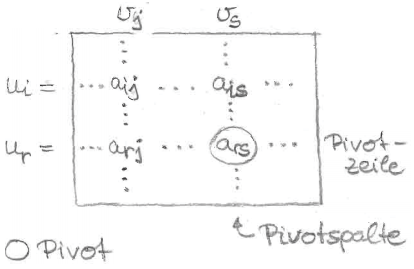 v_j v_s
u_i = ... a_ij ... a_is ...
u_r = ... a_rj ... a_rs ... Pivot-
zeile
↰ Pivotspalte
○ Pivot